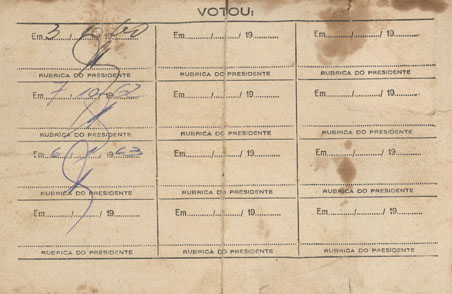 VOTOU:
Em 3 / 10 / 1960 Em ....../....../ 19 ...... Em ....../....../ 19 ......
RUBRICA DO PRESIDENTE RUBRICA DO PRESIDENTE RUBRICA DO PRESIDENTE
Em 7 / 10 / 62 Em ....../....../ 19 ...... Em ....../....../ 19 ......
RUBRICA DO PRESIDENTE RUBRICA DO PRESIDENTE RUBRICA DO PRESIDENTE
Em 6 / / 63 Em ....../....../ 19 ...... Em ....../....../ 19 ......
RUBRICA DO PRESIDENTE RUBRICA DO PRESIDENTE RUBRICA DO PRESIDENTE
Em ....../....../ 19 ...... Em ....../....../ 19 ...... Em ....../....../ 19 ......
RUBRICA DO PRESIDENTE RUBRICA DO PRESIDENTE RUBRICA DO PRESIDENTE